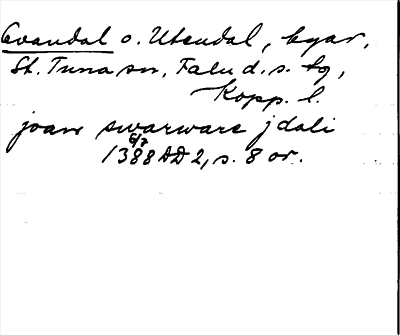 Ovandal o. Utendal, byar,
St. Tuna sn, Falu d. s. tg,
Kopp. l.
joan swarware j dali
6/7
1388 DD 2, s. 8 or.